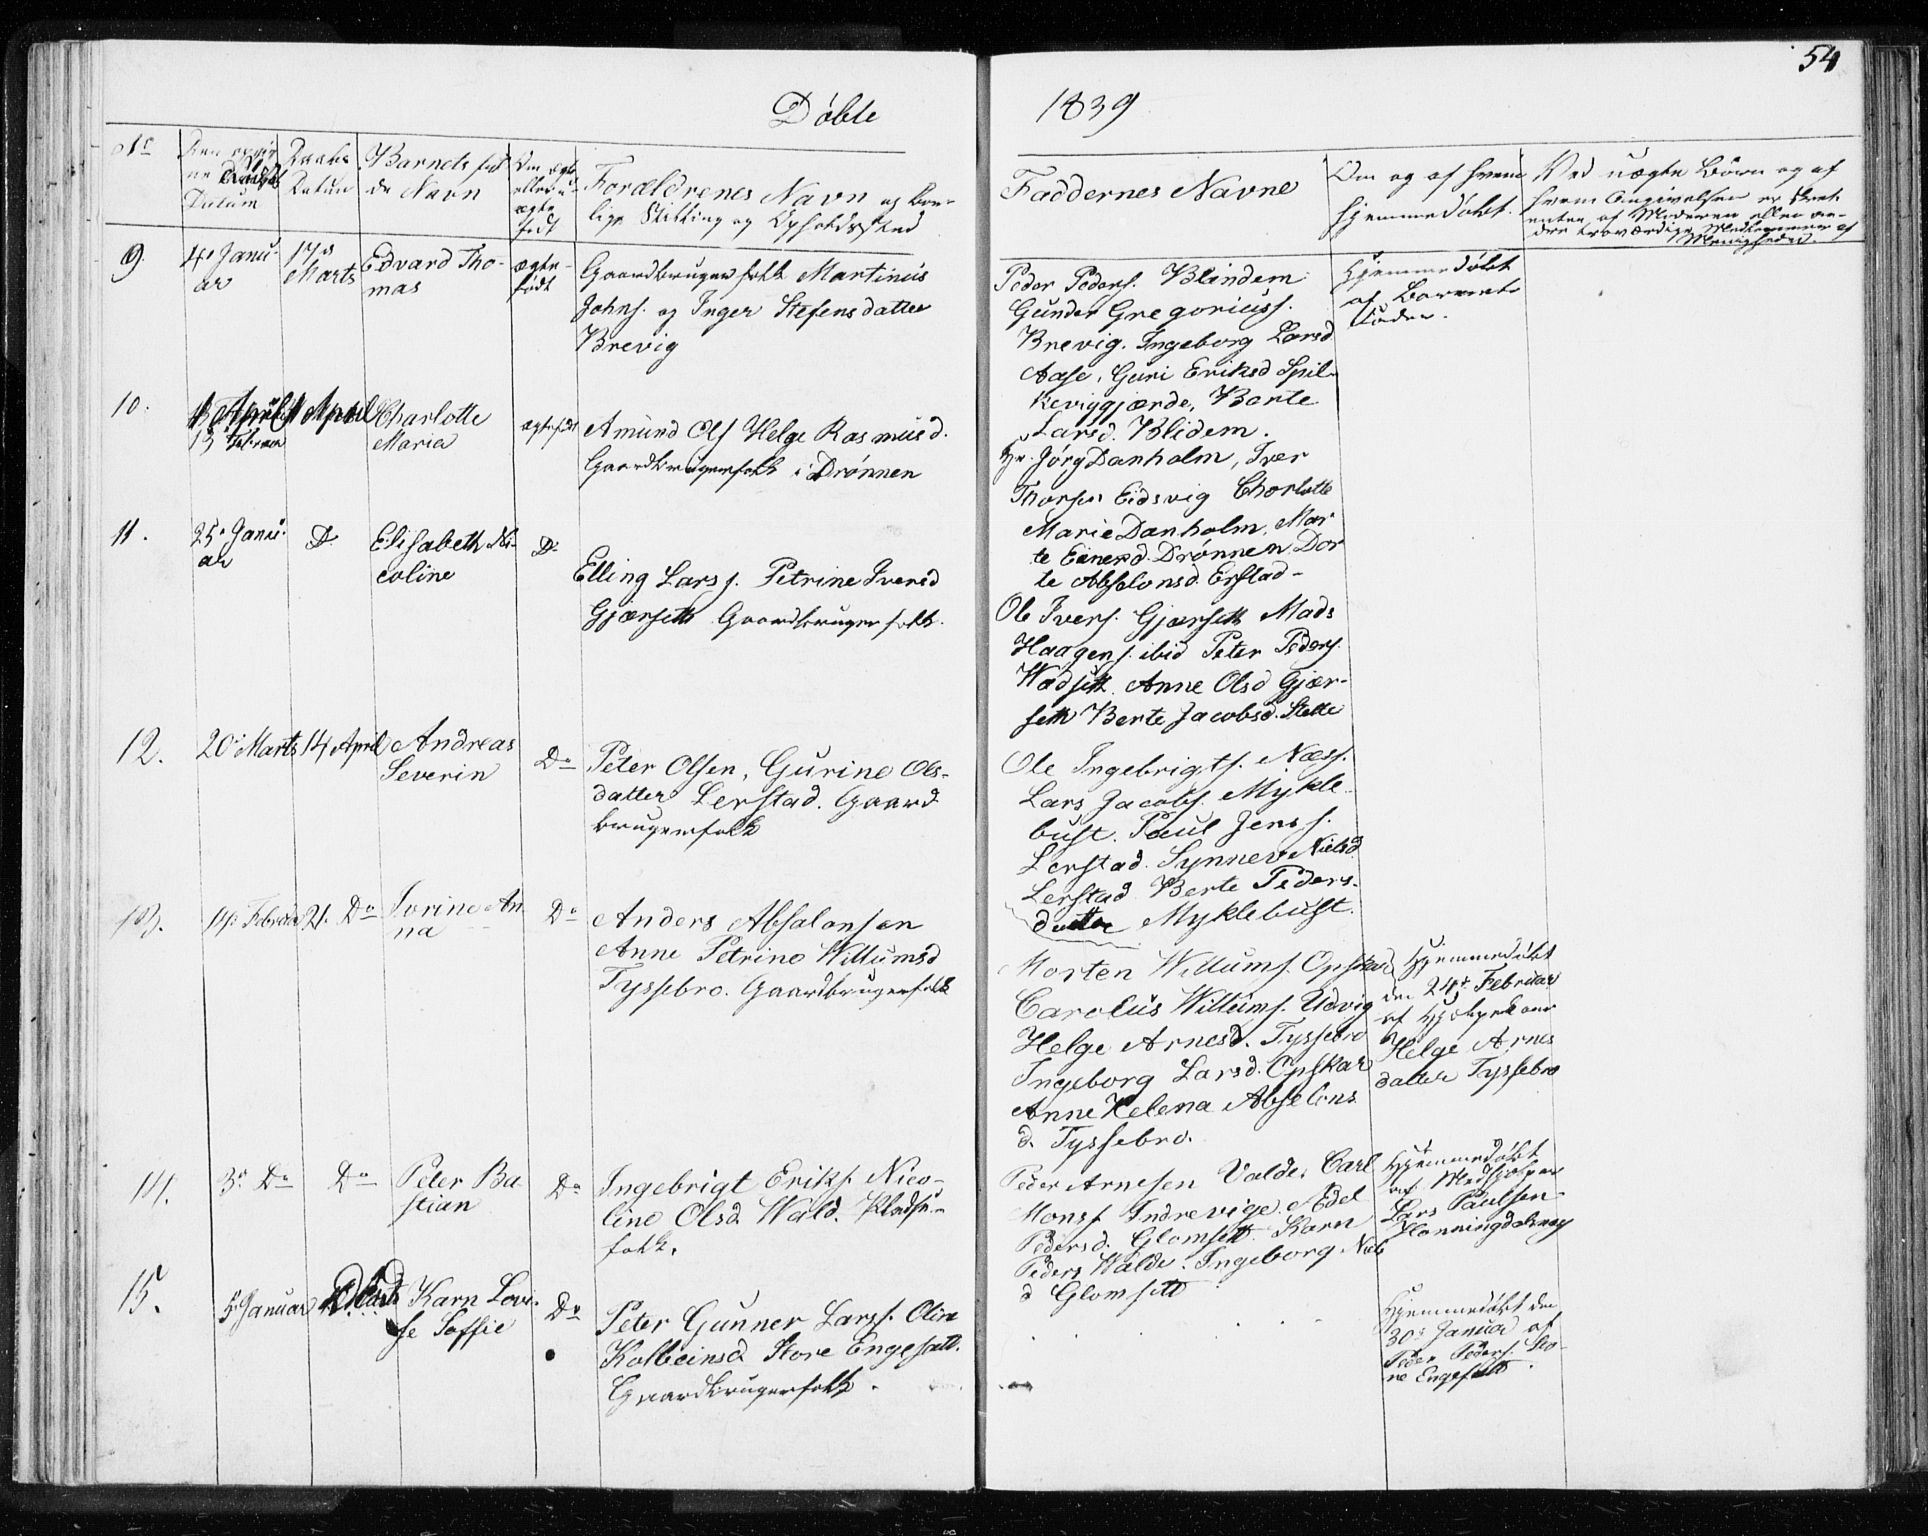 54
Døbte
1839
Daabs
Datum
Barnets ful
de Navn
Om ægte
eller u-
ægte
født
Forældrenes Navn og bor-
lige Stilling og Opholdssted
Faddernes Navne
Om og af hvem
hjemmedøbt.
Ved uægte Børn og af
hvem Angivelsen er skeet
enten af Moderen eller an-
dre troværdige Medlemmer af
Menigheden.
9.
4de Janu-
ar
17de
Marts
Edvard Tho-
mas
ægte-
født
Gaardbruger folk Martinus
Johns. og Inger Stefensdatter
Brevig
Peder Peders. Blindem
Gunder Gregoriuss.
Brevig. Ingeborg Larsd
Aase, Guri Eriksd Spil-
keviggjærde, Berte
Larsd. Blidem.
Hjemmedøbt
af Barnets
Fader.
10.
13 Febru
1 April
Charlotte
Maria
ægtefødt
Amund Ols Helge Rasmusd.
Gaardbrugerfolk i Drønnen
Hr. Jörg Danholm, Iver
Thorsen Eidsvig Charlotte
Marie Danholm, Mar
te Einersd. Drønnen, Dor
te Absalonsd. Erstad-
11.
25de Janu-
ar
Do
Elisabeth Ni-
coline
Do
Elling Larss. Petrine Iversd
Gjærseth Gaardbruger folk.
Ole Ivers. Gjærseth Mads
Haagens. ibid Peter Peders.
Wadseth Anne Olsd Gjær-
seth Berte Jacobsd. Slette
12.
20de Marts
14 April
Andreas
Severin
Do
Peter Olsen, Gurine Ols-
datter Lerstad. Gaard
brugerfolk
Ole Ingebrigts. Næss.
Lars Jacobs. Mykle-
bust. Paul Jenss.
Lerstad. Synnev Nielsd
Lerstad Berte Peders-
datter Myklebust.
13.
14de Februar
21. Do
Sorine An
na
Do
Anders Absalonsen
Anne Petrine Willumsd
Tyssebro. Gaardbrugerfolk
Morten Willums. Opskar
Carolus Willums. Udvig
Helge Arnesd. Tyssebro
Ingeborg Larsd. Opskar
Anne Helena Abselons
d. Tyssebro.
Hjemmedøbt
den 24de Februar
af Hjelpekone
Helge Arnes
datter Tyssebro
14.
3de Do
Do
Peter Ba
stian
Do
Ingebrigt Eriks. Nico-
line Olsd Wald. Pladse-
folk.
Peder Arnesen Valde, Carl
Monss Indrevige. Edel
Pedersd. Glomseth Karn
Peders Walde. Ingeborg Niels
d Glomseth
Hjemmedøbt
af Medhjelper
Lars Paulsen
Honningdalsnæs
15.
5 Januar
Karn Lovi-
se Soffie
Do
Peter Gunner Larss. Oline
Kolbeinsd Store Engesæth.
Gaardbrugerfolk.
Hjemmedøbt den
30de Januar af
Peder Peders. Sto-
re Engeseth.